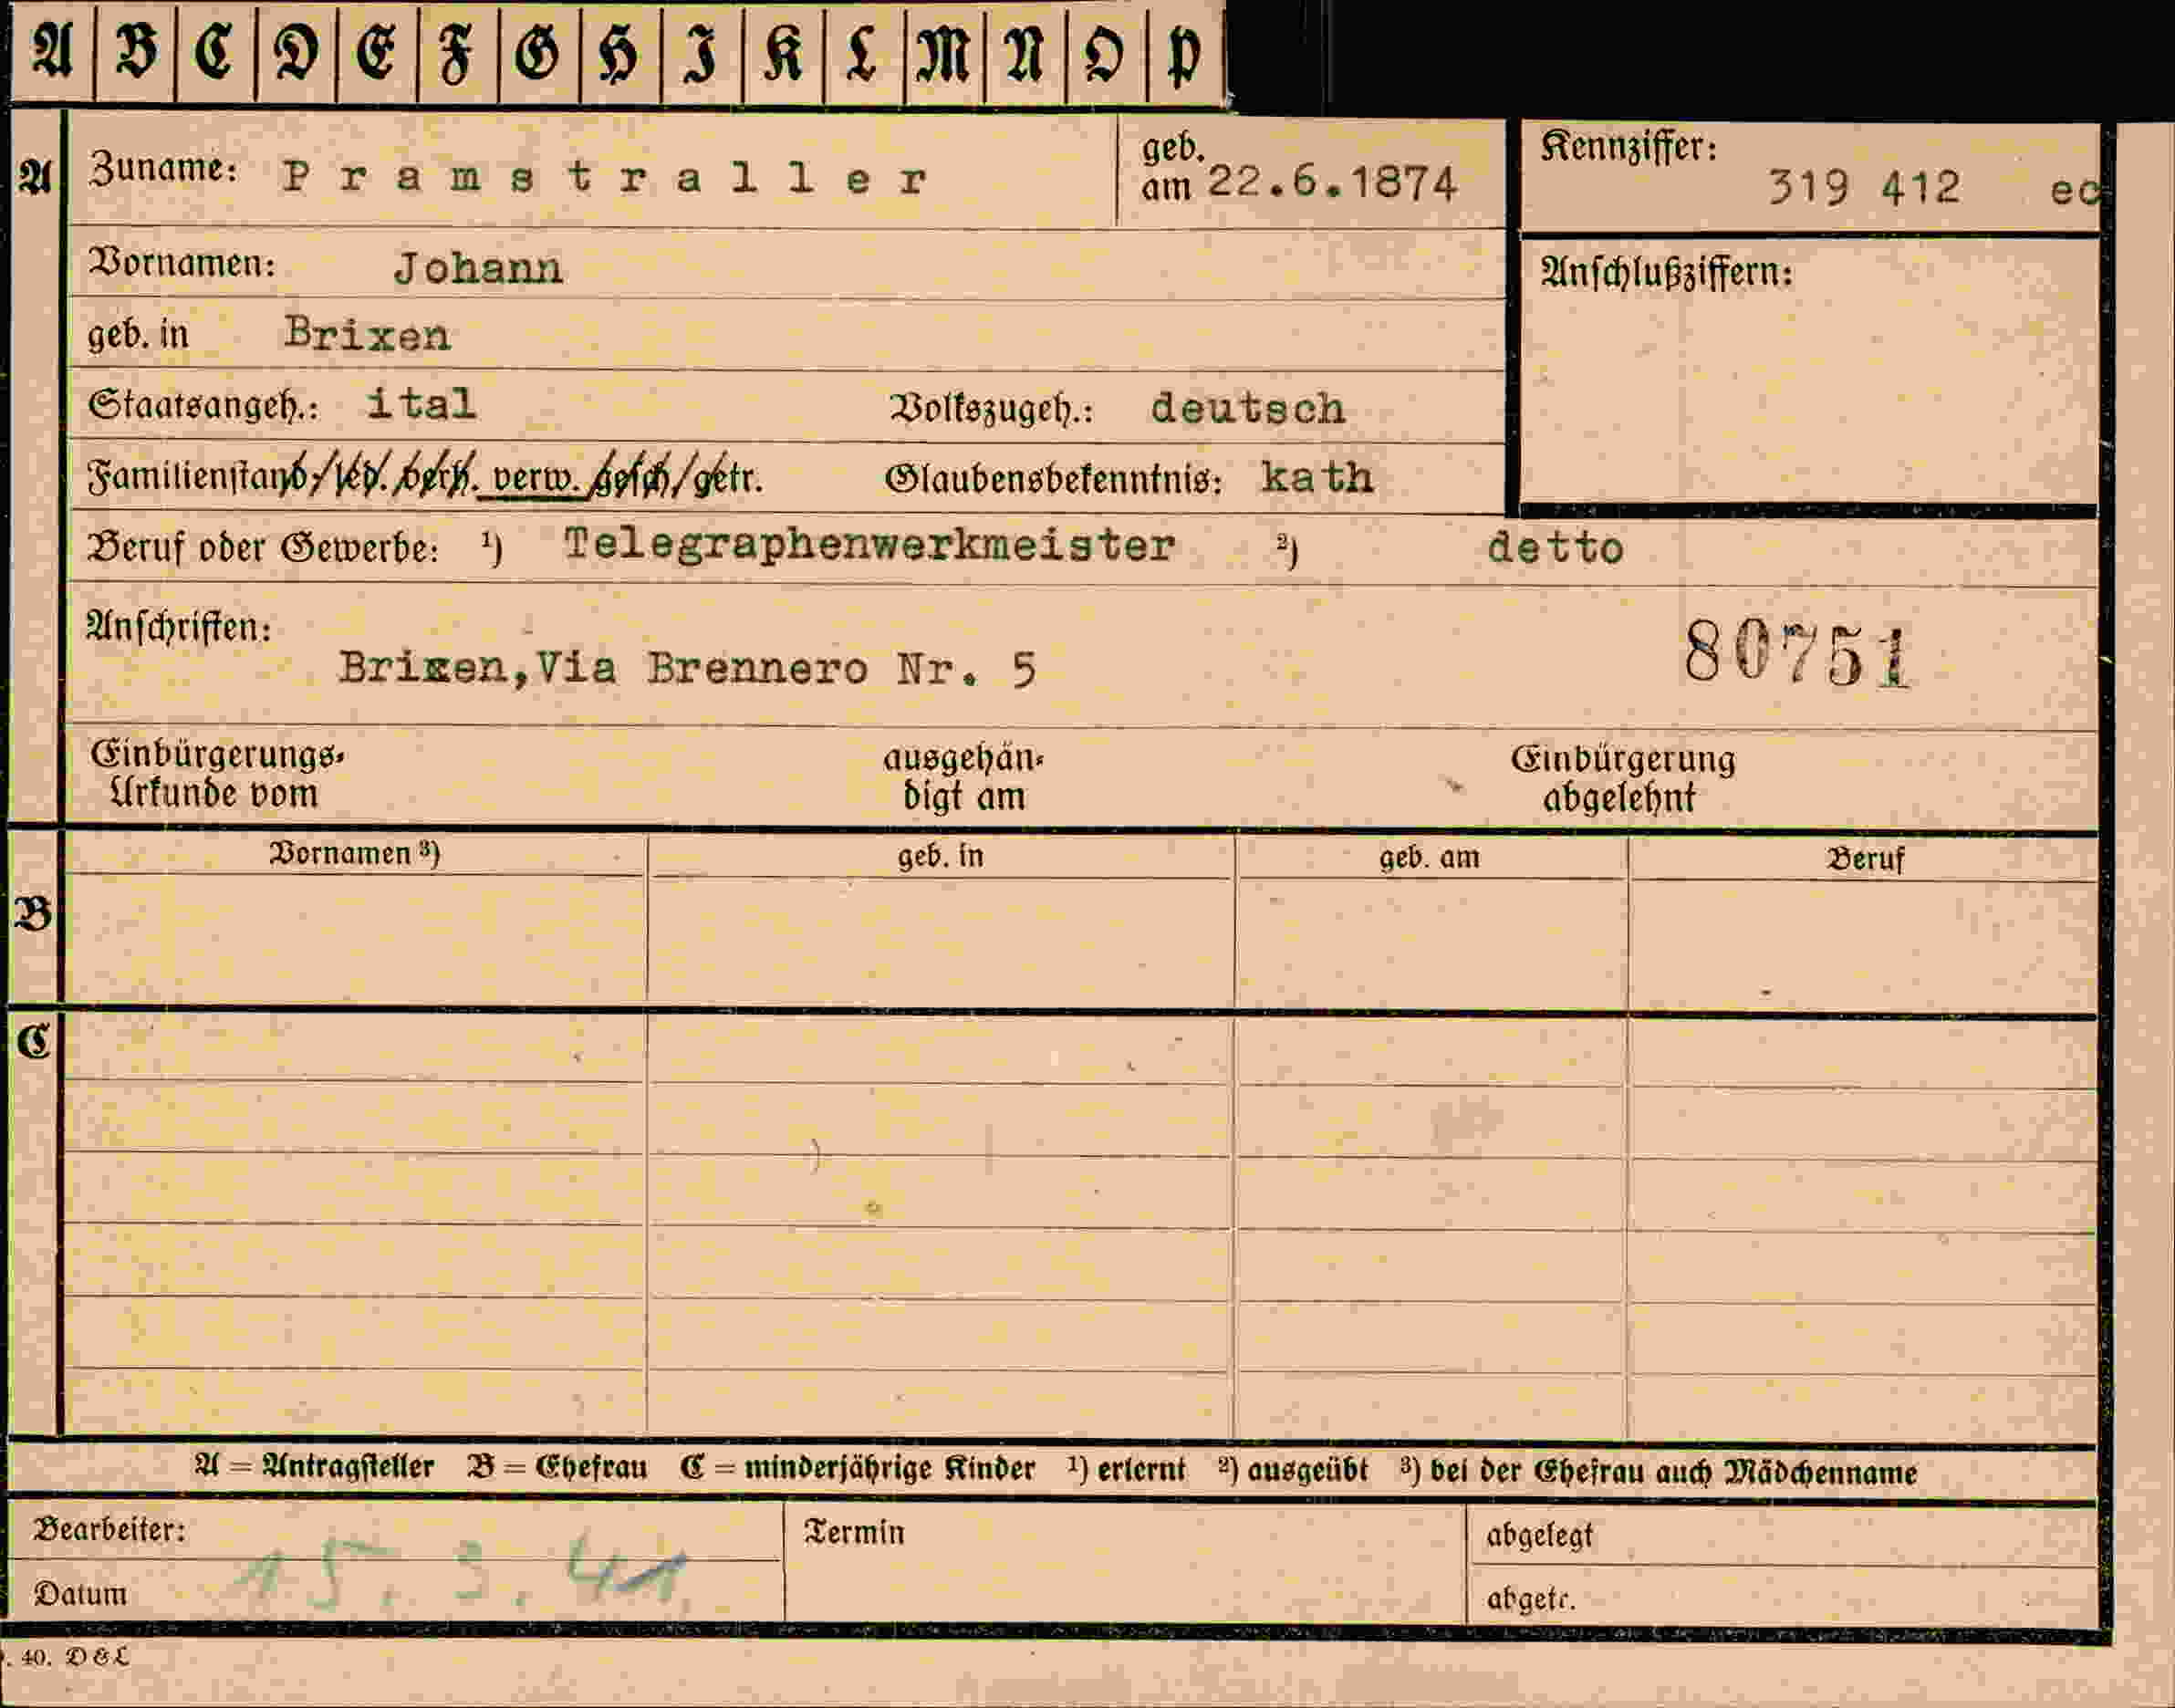 A B C D E F G H I K L M N O P
A Zuname: Pramstraller geb. am 22.6.1874 Kennziffer: 319 412 ec
Vornamen: Johann Anschlußziffern:
geb. in Brixen
Staatsangeh.: ital Volkszugeh.: deutsch
Familienstand: led. verh. verw. gesch. getr. Glaubensbekenntnis: kath
Beruf oder Gewerbe: ¹) Telegraphenwerkmeister ²) detto
Anschriften:
Brixen,Via Brennero Nr. 5 80751
Einbürgerungs- ausgehän- Einbürgerung
Urkunde vom digt am abgelehnt
Vornamen ³) geb. in geb. am Beruf
B
C
A = Antragsteller B = Ehefrau C = minderjährige Kinder ¹) erlernt ²) ausgeübt ³) bei der Ehefrau auch Mädchenname
Bearbeiter: Termin abgelegt
Datum 15. 3. 41. abgetr.
. 40. D & L